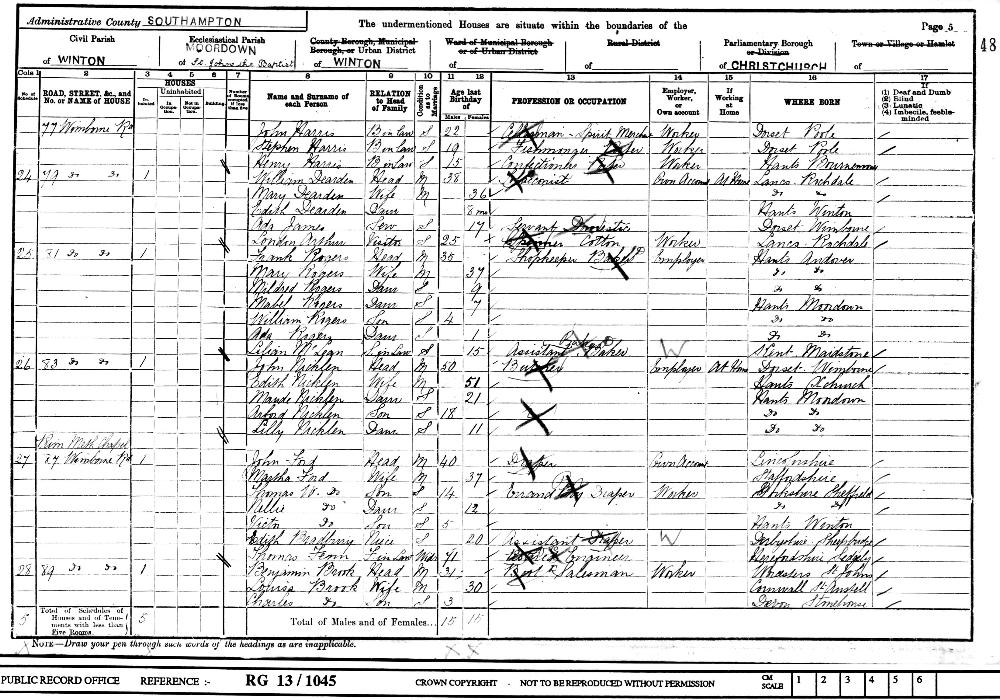 Administrative County SOUTHAMPTON The undermentioned Houses are situate within the boundaries of the Page 5
48
Civil Parish Ecclesiastical Parish County Borough, Municipal Borough, or Urban District Ward of Municipal Borough or of Urban District Rural District Parliamentary Borough or Division Town or Village or Hamlet
of WINTON MOORDOWN of St. Johns the Baptist of WINTON of of of CHRISTCHURCH of
Cols 1 2 3 4 5 6 7 8 9 10 11 12 13 14 15 16 17
No. of Schedule ROAD, STREET, &c., and No. or NAME of HOUSE HOUSES Inhabited Uninhabited In Occupation Not in Occupation Building Number of Rooms occupied if less than five Name and Surname of each Person RELATION to Head of Family Condition as to Marriage Age last Birthday of Males Females PROFESSION OR OCCUPATION Employer, Worker, or Own account If Working at Home WHERE BORN If (1) Deaf and Dumb (2) Blind (3) Lunatic (4) Imbecile, feeble-minded
77 Wimborne Rd John Harris B in law S 22 Worker Dorset Poole
Stephen Harris B in law S 19 Fishmonger Worker Dorset Poole
Henry Harris B in law S 15 Confectioner Worker Hants Bournemouth
24 79 Do Do 1 William Dearden Head M 38 Own Account At Home Lancs Rochdale
Mary Dearden Wife M 36 Do Do
Edith Dearden Daur 8 mo Hants Winton
Ada James Serv S 17 Servant Domestic Dorset Wimborne
London Arthur Visitor S 25 Cotton Worker Lancs Rochdale
25 81 Do Do 1 Frank Rogers Head M 35 Shopkeeper Baker Employer Hants Andover
Mary Rogers Wife M 37 Do Do
Mildred Rogers Daur S 9 Do Do
Mabel Rogers Daur S 7 Hants Moordown
William Rogers Son S 4 Do Do
Ada Rogers Daur S 1 Do Do
Lilian McLean S in Law S 15 Assistant Baker W Kent Maidstone
26 83 Do Do 1 John Nicklen Head M 50 Butcher Employer At Home Dorset Wimborne
Edith Nicklen Wife M 51 Hants Xchurch
Maude Nicklen Daur S 21 Hants Moordown
Nicklen Son S 18 Do Do
Lilly Nicklen Daur S 11 Do Do
Prim Meth Chapel
27 87 Wimborne Rd 1 John Ford Head M 40 Draper Own Account Lincolnshire
Martha Ford Wife M 37 Staffordshire
Thomas W. Do Son S 14 Errand Boy Draper Worker Yorkshire Sheffield
Nellie Do Daur S 12 Do Do
Victor Do Son S 5 Hants Winton
Edith Bradbury Niece S 20 Assistant Draper W Derbyshire
Thomas Fenn F in Law Widr 71 Engineer
28 89 Do Do 1 Benjamin Brook Head M 31 Boot Salesman Worker Worcesters St Johns
Louisa Brook Wife M 30 Cornwall St Austell
Charles Do Son S 3 Devon Stonehouse
5 Total of Schedules of Houses and of Tenements with less than Five Rooms. 5 Total of Males and of Females... 15 15
NOTE—Draw your pen through such words of the headings as are inapplicable.
PUBLIC RECORD OFFICE REFERENCE :- RG 13 / 1045 CROWN COPYRIGHT - NOT TO BE REPRODUCED WITHOUT PERMISSION CM SCALE 1 2 3 4 5 6